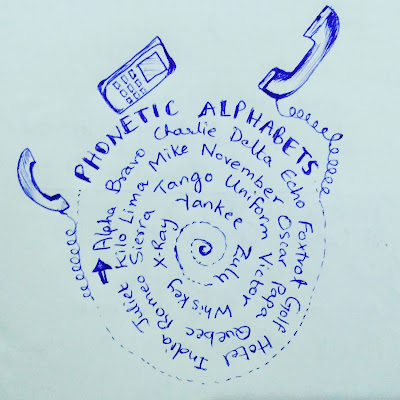 PHONETIC ALPHABETS
Alpha Bravo Charlie Della Echo Foxtrot Golf Hotel India Juliet
Kilo Lima Mike November Oscar Papa Quebec Romeo
Sierra Tango Uniform Victor Whiskey
X-Ray Yankee Zulu